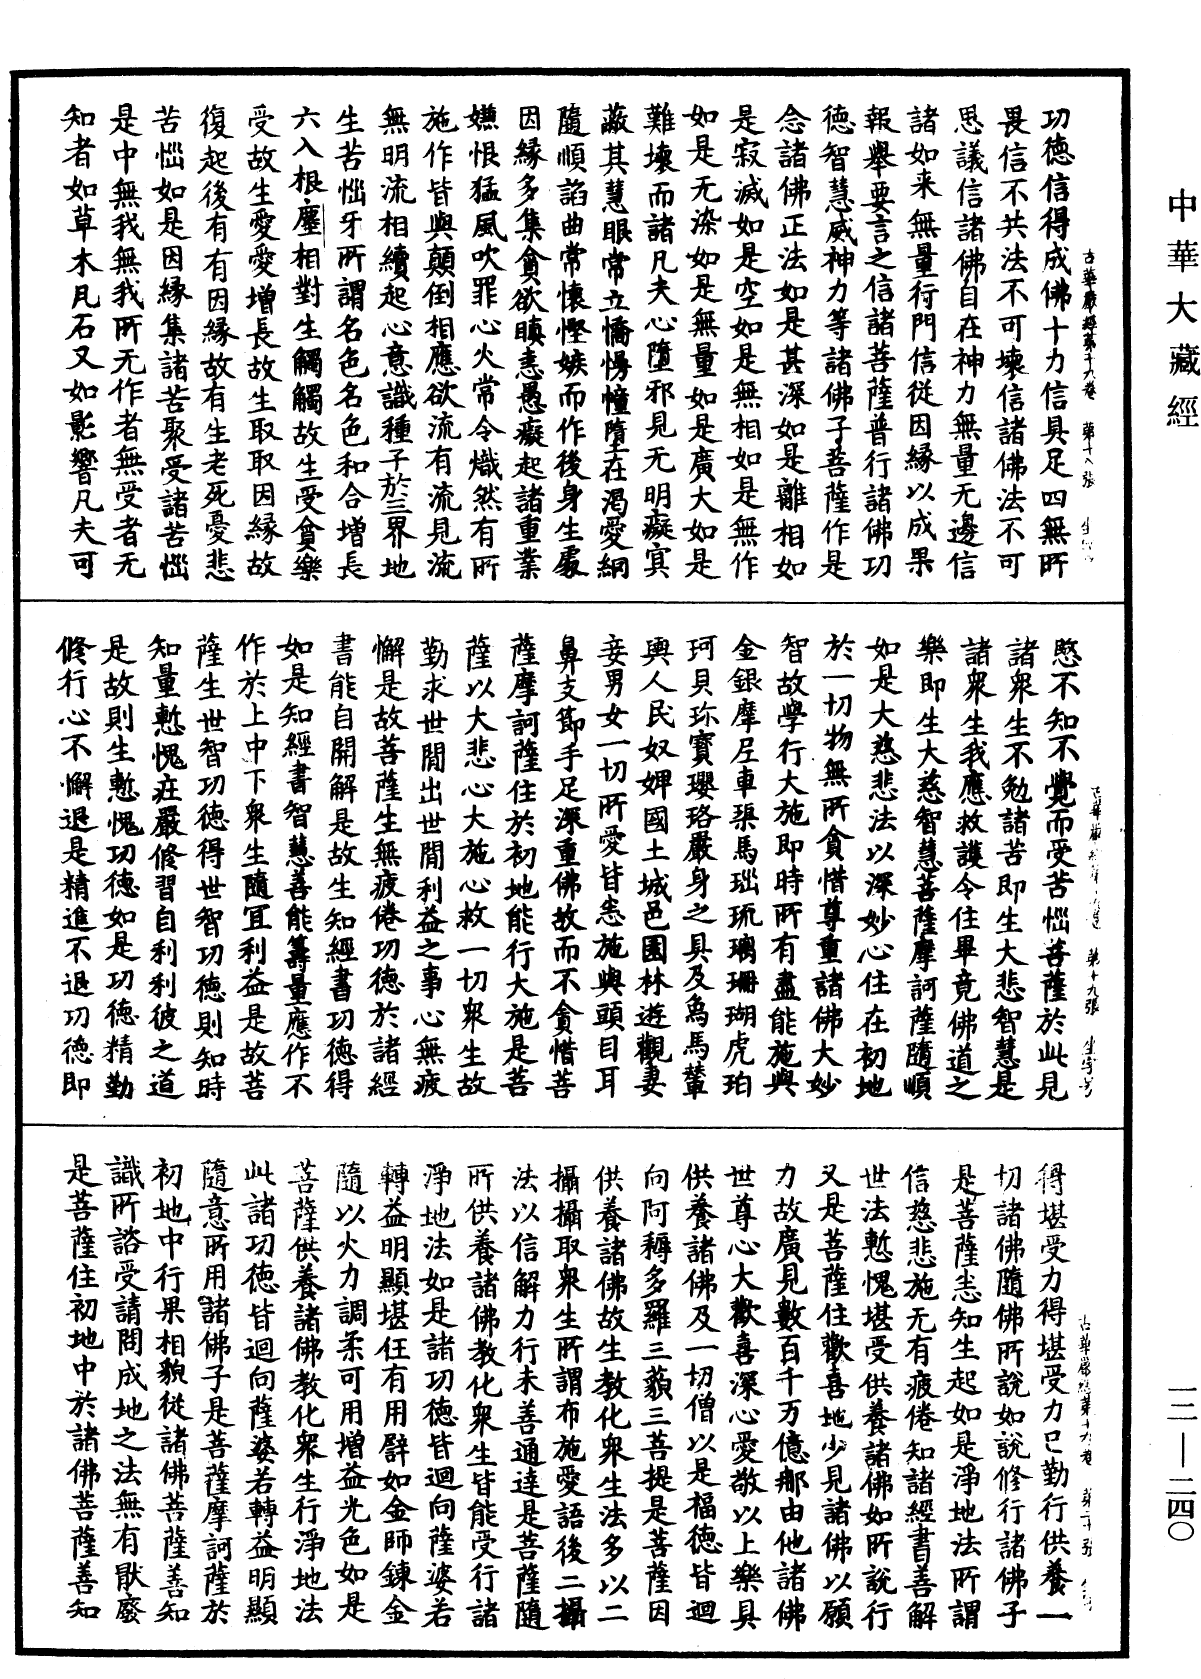 中華大藏經
功德信得成佛十力信具足四無所
畏信不共法不可壞信諸佛法不可
思議信諸佛自在神力無量无邊信
諸如来無量行門信從因緣以成果
報舉要言之信諸菩薩普行諸佛功
德智慧威神力等諸佛子菩薩作是
念諸佛正法如是甚深如是離相如
是寂滅如是空如是無相如是無作
如是无染如是無量如是廣大如是
難壞而諸凡夫心墮邪見无明癡冥
蔽其慧眼常立憍慢幢墮在渴愛網
隨順諂曲常懷慳嫉而作後身生處
因緣多集貪欲瞋恚愚癡起諸重業
嫌恨猛風吹罪心火常令熾然有所
施作皆與顛倒相應欲流有流見流
無明流相續起心意識種子於三界地
生苦惱牙所謂名色名色和合增長
六入根塵相對生觸觸故生受貪樂
受故生愛愛增長故生取取因緣故
復起後有有因緣故有生老死憂悲
苦惱如是因緣集諸苦聚受諸苦惱
是中無我無我所无作者無受者无
知者如草木瓦石又如影響凡夫可
愍不知不覺而受苦惱菩薩於此見
諸衆生不勉諸苦即生大悲智慧是
諸衆生我應救護令住畢竟佛道之
樂即生大慈智慧菩薩摩訶薩隨順
如是大慈悲法以深妙心住在初地
於一切物無所貪惜尊重諸佛大妙
智故學行大施即時所有盡能施與
金銀摩尼車磲馬瑙琉璃珊瑚虎珀
珂貝珎寶瓔珞嚴身之具及象馬輦
輿人民奴婢國土城邑園林遊觀妻
妾男女一切所愛皆悉施與頭目耳
鼻支節手足深重佛故而不貪惜菩
薩摩訶薩住於初地能行大施是菩
薩以大悲心大施心救一切衆生故
勤求世閒出世閒利益之事心無疲
懈是故菩薩生無疲倦功德於諸經
書能自開解是故生知經書功德得
如是知經書智慧善能籌量應作不
作於上中下衆生隨宜利益是故菩
薩生世智功德得世智功德則知時
知量慙愧莊嚴修習自利利彼之道
是故則生慙愧功德如是功德精勤
修行心不懈退是精進不退功德即
得堪受力得堪受力已勤行供養一
切諸佛隨佛所說如說修行諸佛子
是菩薩悉知生起如是淨地法所謂
信慈悲施无有疲倦知諸經書善解
世法慙愧堪受供養諸佛如所說行
又是菩薩住歡喜地少見諸佛以願
力故廣見數百千万億那由他諸佛
世尊心大歡喜深心愛敬以上樂具
供養諸佛及一切僧以是福德皆迴
向阿耨多羅三藐三菩提是菩薩因
供養諸佛故生教化衆生法多以二
攝攝取衆生所謂布施愛語後二攝
法以信解力行未善通達是菩薩隨
所供養諸佛教化衆生皆能受行諸
淨地法如是諸功德皆迴向薩婆若
轉益明顯堪任有用譬如金師鍊金
隨以火力調柔可用增益光色如是
菩薩供養諸佛教化衆生行淨地法
此諸功德皆迴向薩婆若轉益明顯
隨意所用諸佛子是菩薩摩訶薩於
初地中行果相貌從諸佛菩薩善知
識所諮受請問成地之法無有猒廢
是菩薩住初地中於諸佛菩薩善知
一二—二四〇